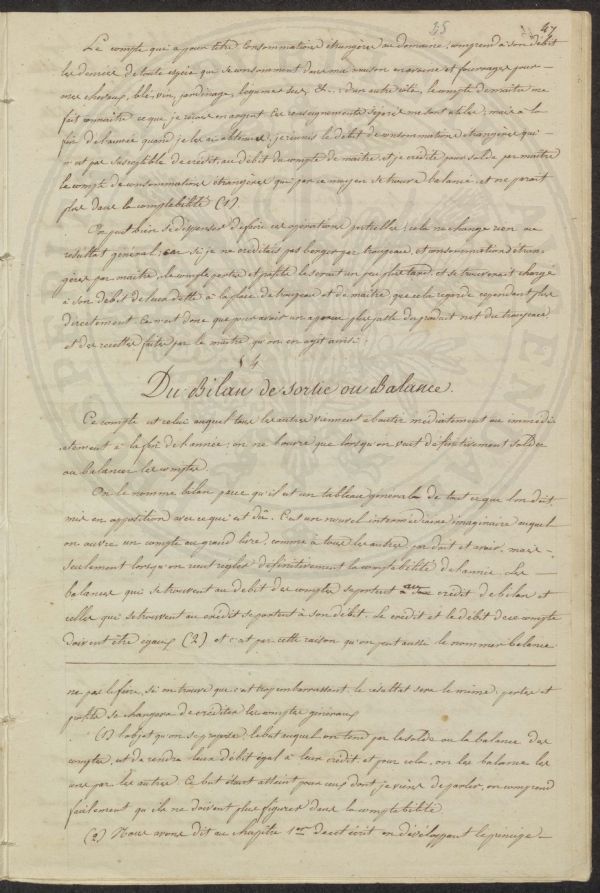 45 47
Le compte qui a pour titre Consommations étrangères au domaine, comprend à son débit
les denrées de toute espèce qui se consomment dans ma maison en avoine et fourrages pour
mes chevaux, blé, vin, jardinage, legumes secs, &... d'un autre côté, le compte de maître me
fait connaître ce que je reçois en argent. Ces renseignements séparés me sont utiles; mais à la
fin de l'année quand je les ai obtenus, je réunis le débit de consommations étrangères qui
n'est pas susceptible de crédit, au débit du compte de maître, et je crédite pour solde par maître
le compte de consommations étrangères qui par ce moyen se trouve balancé et ne parait
plus dans la comptabilité (1).
On peut bien se dispenser de faire ces opérations partielles; cela ne change rien au
résultat général; car si je ne créditais pas berger par troupeau, et consommations étran-
gères par maître, le compte pertes et profits le serait un peu plus tard, et se trouverait chargé
à son débit de leur dette à la place de troupeau et de maître, que cela regarde cependant plus
directement. Ce n'est donc que pour avoir un aperçu plus juste du produit net du troupeau,
et des recettes faites par le maître, qu'on en agit ainsi.
§ 4
Du Bilan de sortie ou Balance.
Ce compte est celui auquel tous les autres viennent aboutir médiatement ou immédi-
atement à la fin de l'année; on ne l'ouvre que lorsqu'on veut définitivement solder
ou balancer les comptes.
On le nomme bilan parce qu'il est un tableau général de tout ce que l'on doit,
mis en opposition avec ce qui est dû. C'est un nouvel intermédiaire imaginaire auquel
on ouvre un compte au grand livre, comme à tous les autres par doit et avoir, mais
seulement lorsqu'on veut régler définitivement la comptabilité de l'année. Les
balances qui se trouvent au débit des comptes se portent au crédit de bilan et
celles qui se trouvent au crédit se portent à son débit. Le crédit et le débit de ce compte
doivent être égaux (2) et c'est par cette raison qu'on peut aussi le nommer balance
ne pas le faire, si on trouve que c'est trop embarrassant, le résultat sera le même; pertes et
profits se chargera de créditer les comptes généraux
(1) l'objet qu'on se propose, le but auquel on tend par le solde ou la balance des
comptes, est de rendre leur débit égal à leur crédit et pour cela, on les balance les
uns par les autres. Ce but étant atteint pour ceux dont je viens de parler, on comprend
facilement qu'ils ne doivent plus figurer dans la comptabilité.
(2) Nous avons dit au chapitre 1er de cet écrit en développant le principe